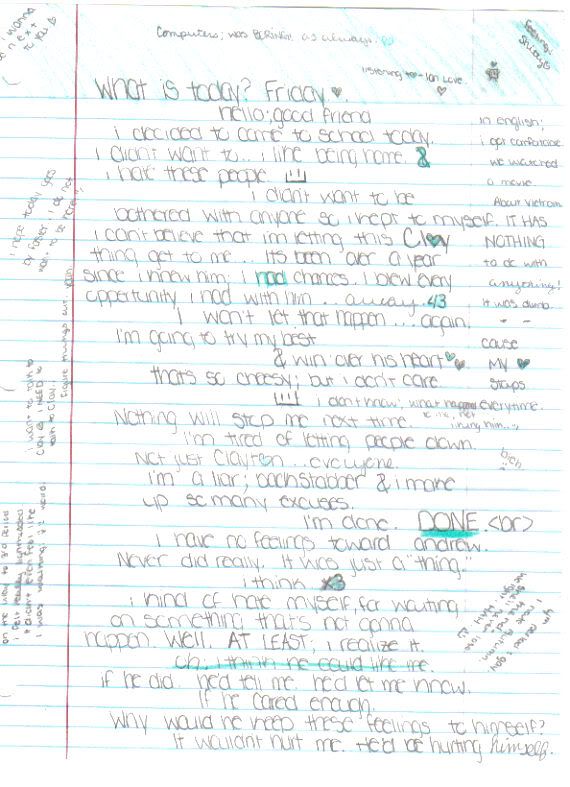 Computers; was BORINNK as always.
listening to - Ian Love.
What is today? Friday
hello; good friend
i decided to come to school today.
i didn't want to... i like being home. &
i hate these people.
i didn't want to be
bothered with anyone so i kept to myself.
i can't believe that i'm letting this Clay
thing get to me... its been over a year
since i knew him; i had chances. i blew every
opportunity i had with him.. away. </3
I won't let that happen... again.
I'm going to try my best
& win over his heart
that's so cheesy; but i don't care
i don't know; what happens
to me, next
Nothing will stop me next time.
i hung him...
I'm tired of letting people down.
Not just Clayton... everyone.
i'm a liar; backstabber & i make
up so many excuses.
I'm done. DONE. <br>
i have no feelings toward andrew.
Never did really. It was just a "thing."
i think x3
i kind of hate myself, for waiting
on something that's not gonna
happen. Well, AT LEAST; i realize it.
uh; i think he could like me.
if he did. he'd tell me. he'd let me know.
If he cared enough.
Why would he keep these feelings to himself?
It wouldnt hurt me. He'd be hurting himself.
in english;
i got confortable
we watched
a movie
About Vietnam
IT HAS
NOTHING
to do with
anything!
it was dumb.
- -
cause
MY
stops
everytime.
i wanna
next
to you
feeling;
i hope today goes
by faster. i do not
want to be here!!
i want to talk to
Clay. i NEED to
talk to Clay..
figure things out. yeah.
on the way to 3rd period
i felt really lightheaded
i didn't even feel like
i was walking. it's weird.